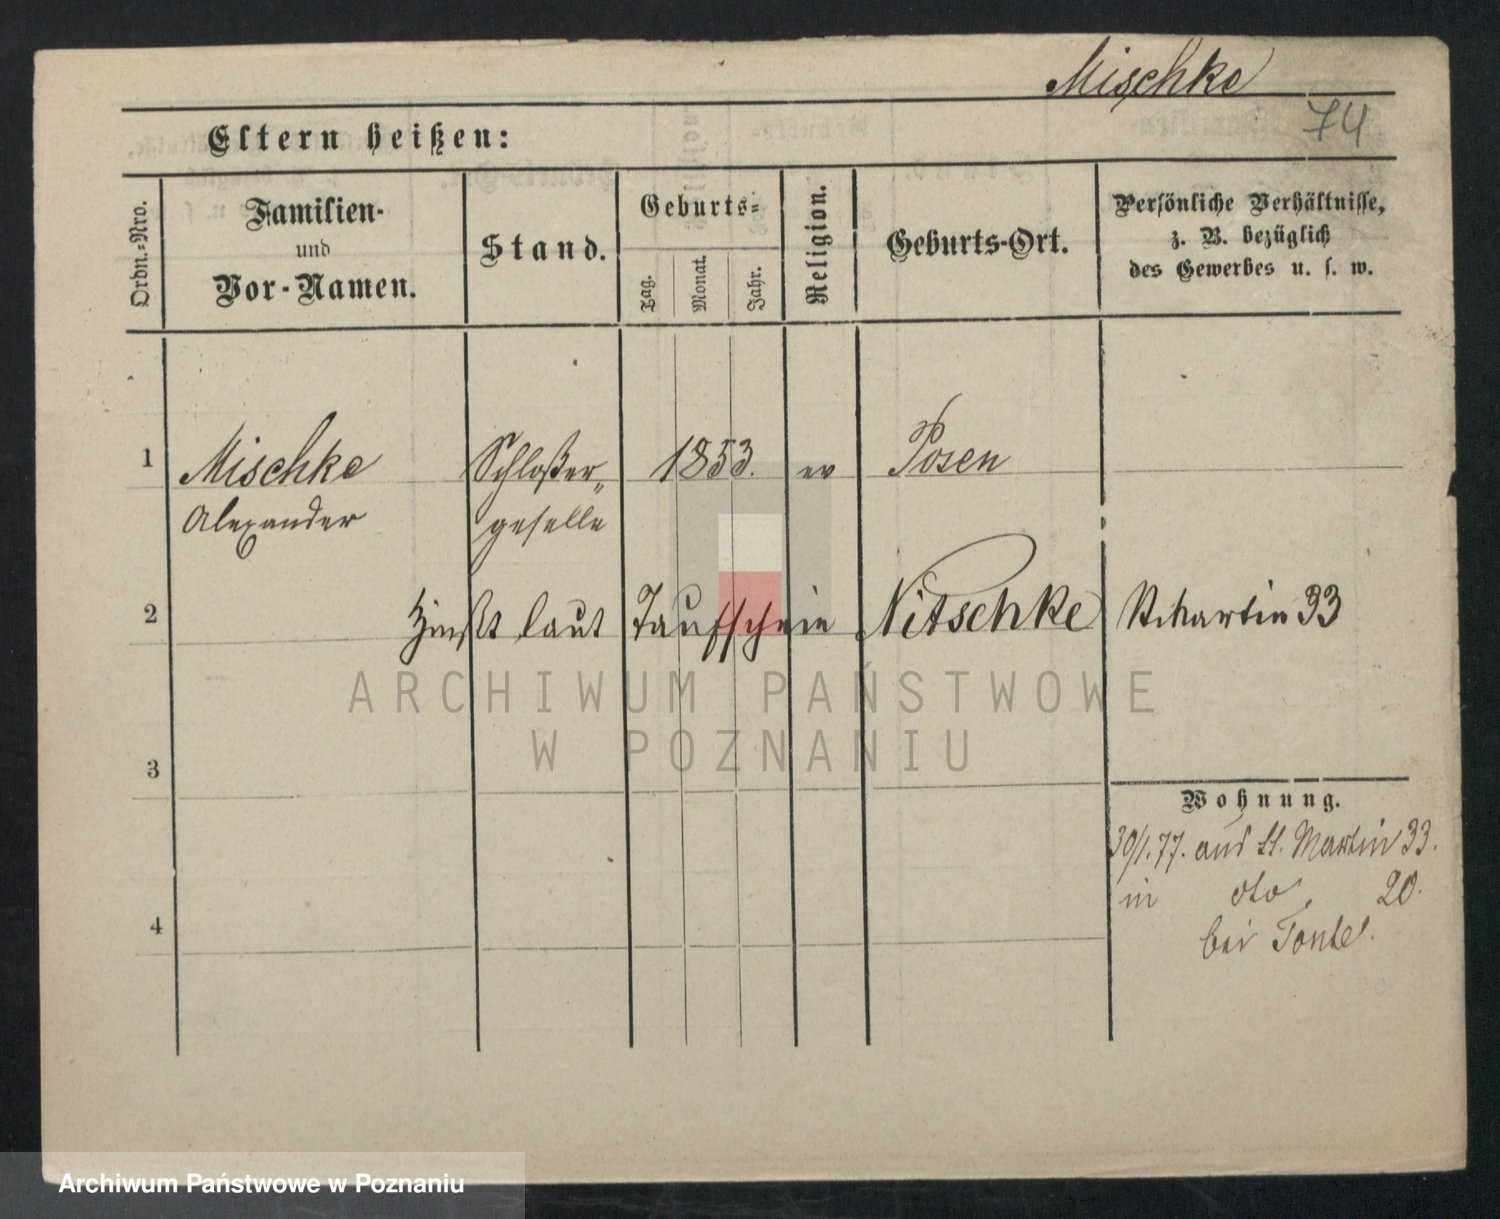 Mischke
74
Eltern heißen:
Ordn.-Nro.
Familien-
und
Vor-Namen.
Stand.
Geburts-
Tag.
Monat.
Jahr.
Religion.
Geburts-Ort.
Persönliche Verhältnisse,
z. B. bezüglich
des Gewerbes u. s. w.
1
Mischke
Alexander
Schloßer-
geselle
1853.
ev
Posen
2
laut Taufschein Nitschke
St Martin 33
ARCHIWUM PAŃSTWOWE
W POZNANIU
3
Wohnung.
30/1.77. aus St. Martin 33.
in dto 20.
bei
4
Archiwum Państwowe w Poznaniu